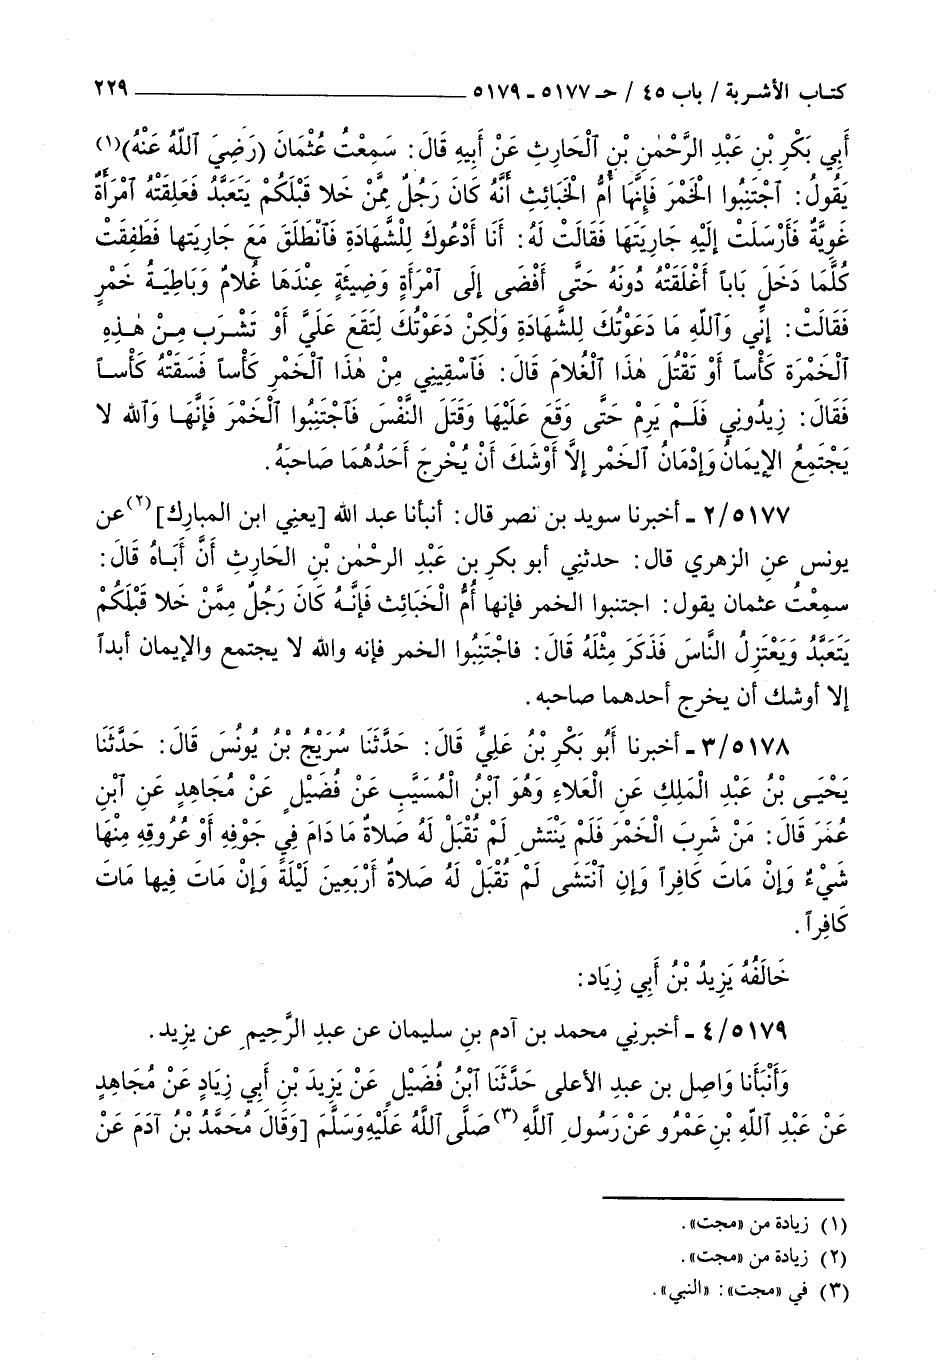 كتاب الأشربة / باب ٤٥ / حـ ٥١٧٧ ـ ٥١٧٩ ٢٢٩
أَبِي بَكْرِ بْنِ عَبْدِ الرَّحْمٰنِ بْنِ ٱلْحَارِثِ عَنْ أَبِيهِ قَالَ: سَمِعْتُ عُثْمَانَ (رَضِيَ ٱللَّهُ عَنْهُ)(١)
يَقُولُ: ٱجْتَنِبُوا الْخَمْرَ فَإِنَّهَا أُمُّ الْخَبَائِثِ أَنَّهُ كَانَ رَجُلٌ مِمَّنْ خَلا قَبْلَكُمْ يَتَعَبَّدُ فَعَلِقَتْهُ ٱمْرَأَةٌ
غَوِيَّةٌ فَأَرْسَلَتْ إِلَيْهِ جَارِيَتَهَا فَقَالَتْ لَهُ: أَنَا أَدْعُوكَ لِلشَّهَادَةِ فَٱنْطَلَقَ مَعَ جَارِيَتِها فَطَفِقَتْ
كُلَّمَا دَخَلَ بَاباً أَغْلَقَتْهُ دُونَهُ حَتَّى أَفْضَى إِلَى ٱمْرَأَةٍ وَضِيئَةٍ عِنْدَهَا غُلامٌ وَبَاطِيَةُ خَمْرٍ
فَقَالَتْ: إِنِّي وَٱللَّهِ مَا دَعَوْتُكَ لِلشَّهَادَةِ وَلٰكِنْ دَعَوْتُكَ لِتَقَعَ عَلَيَّ أَوْ تَشْرَبَ مِنْ هٰذِهِ
ٱلْخَمْرَة كَأْساً أَوْ تَقْتُلَ هٰذا ٱلْغُلامَ قَالَ: فَٱسْقِينِي مِنْ هٰذَا ٱلْخَمْرِ كَأْساً فَسَقَتْهُ كَأْسـاً
فَقَالَ: زِيدُونِي فَلَمْ يَرِمْ حَتَّى وَقَعَ عَلَيْهَا وَقَتَلَ النَّفْسَ فَٱجْتَنِبُوا ٱلْخَمْرَ فَإِنَّهَا وَٱلله لا
يَجْتَمِعُ الإِيمَانُ وَإِدْمَانُ ٱلخَمْرِ إِلاَّ أَوْشَكَ أَنْ يُخْرِجَ أَحَدُهُمَا صَاحِبَهُ.
٢/٥١٧٧ ـ أخبرنا سويد بن نصر قال: أنبأنا عبد الله [يعني ابن المبارك](٢) عن
يونس عن الزهري قال: حدثني أبو بكرِ بنِ عَبْدِ الرحْمٰنِ بْنِ الحَارِثِ أَنَّ أَبَاهُ قَالَ:
سمِعْتُ عثمان يقول: اجتنبوا الخمر فإنها أُمُّ الْخَبَائِث فَإِنَّهُ كَانَ رَجُلٌ مِمَّنْ خَلا قَبْلَكُمْ
يَتَعَبَّدُ وَيَعْتَزِلُ النَّاسَ فَذَكَرَ مِثْلَهُ قَالَ: فاجْتَنِبُوا الخمر فإنه والله لا يجتمع والإيمان أبداً
إلا أوشك أن يخرج أحدهما صاحبه.
٣/٥١٧٨ ـ أخبرنا أَبُو بَكْرِ بْنُ عَلِيٍّ قَالَ: حَدَّثَنَا سُرَيْجُ بْنُ يُونُسَ قَالَ: حَدَّثَنَا
يَحْيَـى بْنُ عَبْدِ الْمَلِكِ عَنِ الْعَلاءِ وَهُوَ ٱبْنُ الْمُسَيَّبِ عَنْ فُضَيْلٍ عَنْ مُجَاهِدٍ عَنِ ٱبْنِ
عُمَرَ قَالَ: مَنْ شَرِبَ الْخَمْرَ فَلَمْ يَنْتَشِ لَمْ تُقْبَلْ لَهُ صَلاةٌ مَا دَامَ فِي جَوْفِهِ أَوْ عُرُوقِهِ مِنْهَا
شَيْءٌ وَإِنْ مَاتَ كَافِراً وَإِنِ ٱنْتَشَى لَمْ تُقْبَلْ لَهُ صَلاةٌ أَرْبَعِينَ لَيْلَةً وَإِنْ مَاتَ فِيها مَاتَ
كَافِراً.
خَالَفُهُ يَزِيدُ بْنُ أَبِي زِيَاد:
٤/٥١٧٩ ـ أخبرنِي محمد بن آدم بنِ سليمان عن عبدِ الرَّحِيمِ عن يزيد.
وَأَنْبَأَنا وَاصِل بن عبد الأعلى حَدَّثَنَا ٱبْنُ فُضَيْلٍ عَنْ يَزِيدَ بْنِ أَبِي زِيَادٍ عَنْ مُجَاهِدٍ
عَنْ عَبْدِ ٱللَّهِ بْنِ عَمْرُو عَنْ رَسُولِ ٱللَّهِ(٣) صَلَّى ٱللَّهُ عَلَيْهِ وَسَلَّمَ [وَقَالَ مُحَمَّدُ بْنُ آدَمَ عَنْ
(١) زيادة من «مجت».
(٢) زيادة من «مجت».
(٣) في «مجت»: «النبي».